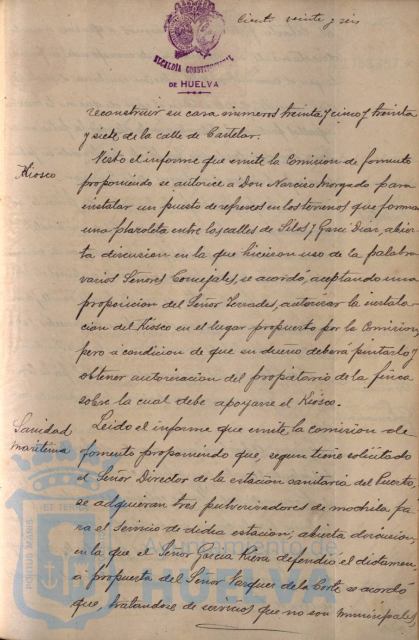 Ciento veinte y seis
ALCALDIA CONSTITUCIONAL
DE HUELVA
reconstruir su casa números treinta y cinco y treinta
y siete, de la calle de Castelar.
Kiosco
Visto el informe que emite la Comision de fomento
proponiendo se autorice a Don Narciso Morgado para
instalar un puesto de refrescos en los terrenos que forman
una plazoleta entre las calles de Silos y Garci Diaz, abier-
ta discusion en la que hicieron uso de la palabra
varios Señores Concejales, se acordó, aceptando una
proposicion del Señor Terrades, autorizar la instala-
cion del Kiosco en el lugar propuesto por la Comision,
pero a condicion de que su dueño deberá pintarlo y
obtener autorizacion del propietario de la finca
sobre la cual debe apoyarse el Kiosco.
Sanidad
marítima
Leido el informe que emite la comision de
fomento proponiendo que, segun tiene solicitado
el Señor Director de la estación sanitaria del Puerto,
se adquieran tres pulverizadores de mochila pa-
ra el servicio de dicha estacion; abierta discusion,
en la que el Señor Garcia Riera defendió el dictamen,
a propuesta del Señor Vazquez de la Corte, se acordó
que, tratandose de servicios que no son municipales,
PORTUS MARIS ET TERRAE
Ayuntamiento de
HUELVA